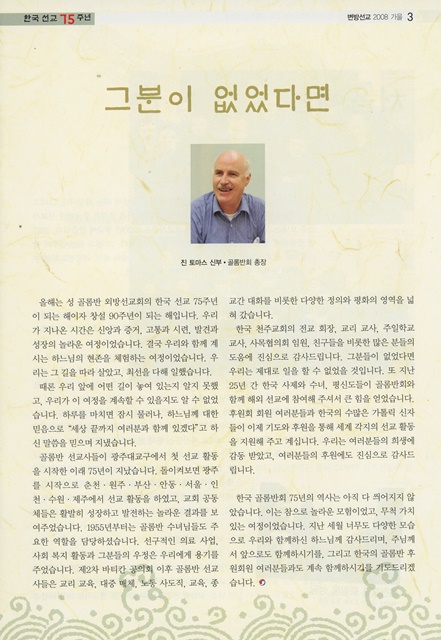 한국 선교 75주년
변방선교 2008 가을 3
그분이 없었다면
진 토마스 신부 • 골롬반회 총장
올해는 성 골롬반 외방선교회의 한국 선교 75주년
이 되는 해이자 창설 90주년이 되는 해입니다. 우리
가 지나온 시간은 신앙과 증거, 고통과 시련, 발견과
성장의 놀라운 여정이었습니다. 결국 우리와 함께 계
시는 하느님의 현존을 체험하는 여정이었습니다. 우
리는 그 길을 따라 살았고, 최선을 다해 일했습니다.
때론 우리 앞에 어떤 길이 놓여 있는지 알지 못했
고, 우리가 이 여정을 계속할 수 있을지도 알 수 없었
습니다. 하루를 마치면 잠시 물러나, 하느님께 대한
믿음으로 "세상 끝까지 여러분과 함께 있겠다"고 하
신 말씀을 믿으며 지냈습니다.
골롬반 선교사들이 광주대교구에서 첫 선교 활동
을 시작한 이래 75년이 지났습니다. 돌이켜보면 광주
를 시작으로 춘천·원주·부산·안동·서울·인
천·수원·제주에서 선교 활동을 하였고, 교회 공동
체들은 활발히 성장하고 발전하는 놀라운 결과를 보
여주었습니다. 1955년부터는 골롬반 수녀님들도 주
요한 역할을 담당하셨습니다. 선구적인 의료 사업,
사회 복지 활동과 그분들의 우정은 우리에게 용기를
주었습니다. 제2차 바티칸 공의회 이후 골롬반 선교
사들은 교리 교육, 대중 매체, 노동 사도직, 교육, 종
교간 대화를 비롯한 다양한 정의와 평화의 영역을 넓
혀 갔습니다.
한국 천주교회의 전교 회장, 교리 교사, 주일학교
교사, 사목협의회 임원, 친구들을 비롯한 많은 분들의
도움에 진심으로 감사드립니다. 그분들이 없었다면
우리는 제대로 일을 할 수 없었을 것입니다. 또 지난
25년 간 한국 사제와 수녀, 평신도들이 골롬반회와
함께 해외 선교에 참여해 주셔서 큰 힘을 얻었습니다.
후원회 회원 여러분들과 한국의 수많은 가톨릭 신자
들이 이제 기도와 후원을 통해 세계 각지의 선교 활동
을 지원해 주고 계십니다. 우리는 여러분들의 희생에
감동 받았고, 여러분들의 후원에도 진심으로 감사드
립니다.
한국 골롬반회 75년의 역사는 아직 다 씌어지지 않
았습니다. 이는 참으로 놀라운 모험이었고, 무척 가치
있는 여정이었습니다. 지난 세월 너무도 다양한 모습
으로 우리와 함께하신 하느님께 감사드리며, 주님께
서 앞으로도 함께하시기를, 그리고 한국의 골롬반 후
원회원 여러분들과도 계속 함께하시기를 기도드리겠
습니다.